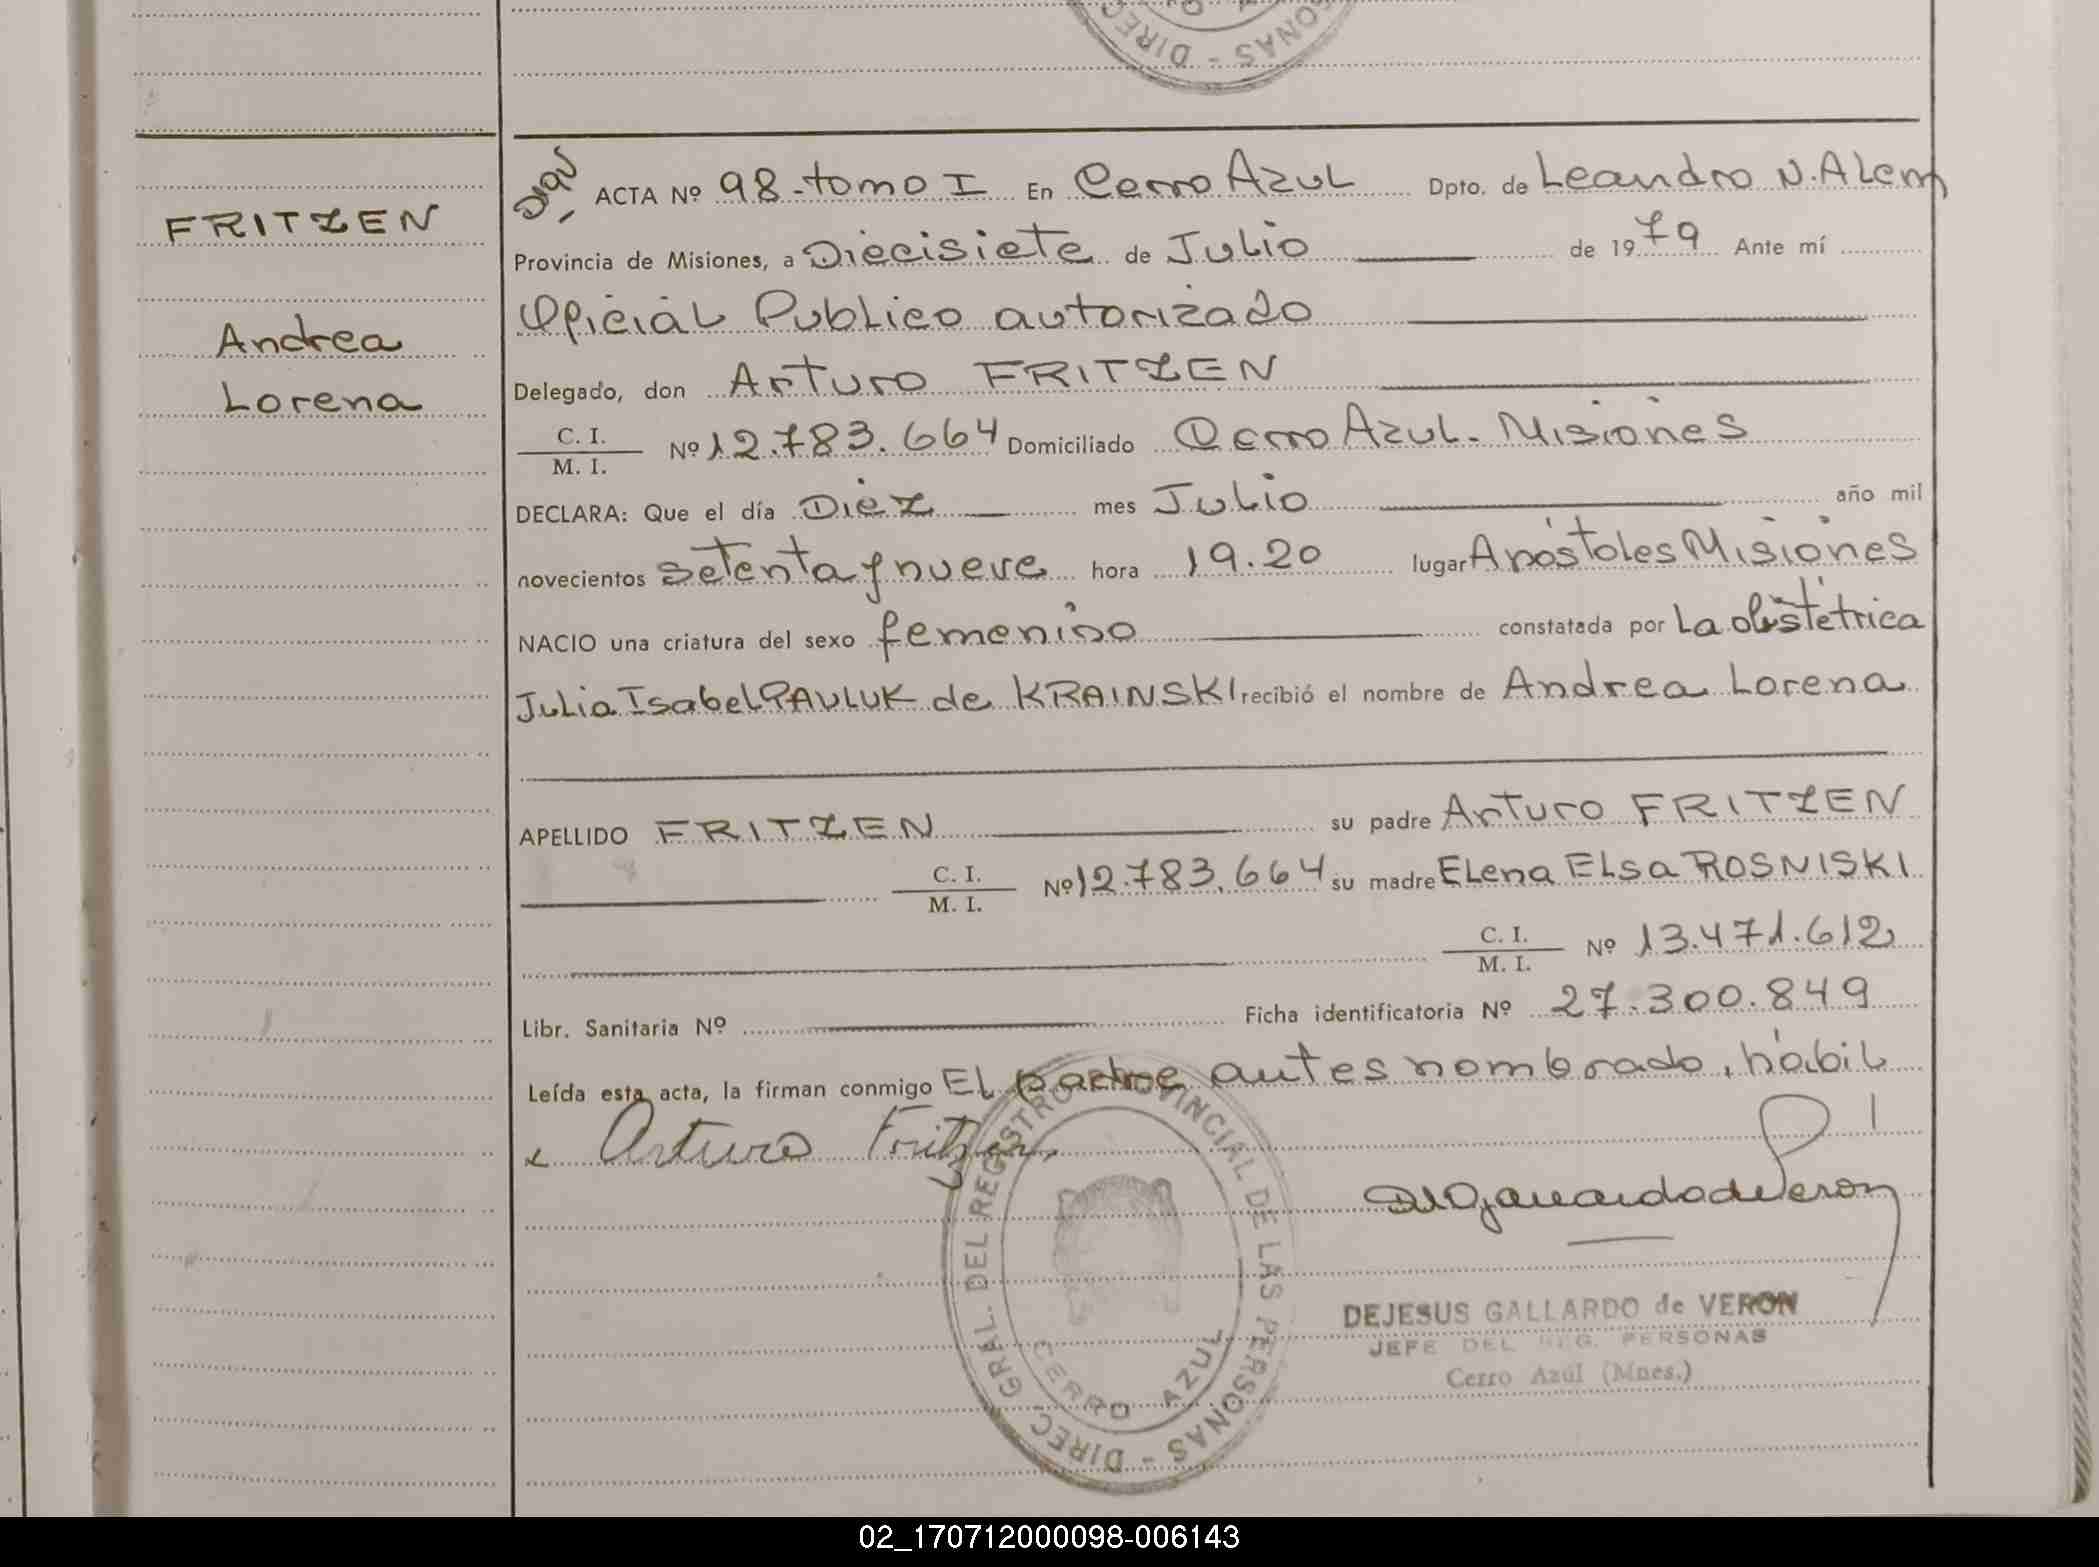 DIREC - SONAS
FRITZEN
Andrea
Lorena
ACTA Nº 98-tomo I En Cerro Azul Dpto. de Leandro N. Alem
Provincia de Misiones, a Diecisiete de Julio de 1979 Ante mí
Oficial Publico autorizado
Delegado, don Arturo FRITZEN
C. I.
M. I.
Nº 12.783.664 Domiciliado Cerro Azul - Misiones
DECLARA: Que el día Diez mes Julio año mil
novecientos setenta y nueve hora 19.20 lugar Apóstoles Misiones
NACIO una criatura del sexo femenino constatada por La obstetrica
Julia Isabel PAULUK de KRAINSKI recibió el nombre de Andrea Lorena
APELLIDO FRITZEN su padre Arturo FRITZEN
C. I.
M. I.
Nº 12.783.664 su madre Elena Elsa ROSNISKI
C. I.
M. I.
Nº 13.471.612
Libr. Sanitaria Nº Ficha identificatoria Nº 27.300.849
Leída esta acta, la firman conmigo El padre antes nombrado, hábil
x Arturo Fritzen
DIREC. GRAL. DEL REGISTRO PROVINCIAL DE LAS PERSONAS -
CERRO AZUL
DEJESUS GALLARDO de VERON
JEFE DEL REG. PERSONAS
Cerro Azúl (Mnes.)
02_170712000098-006143